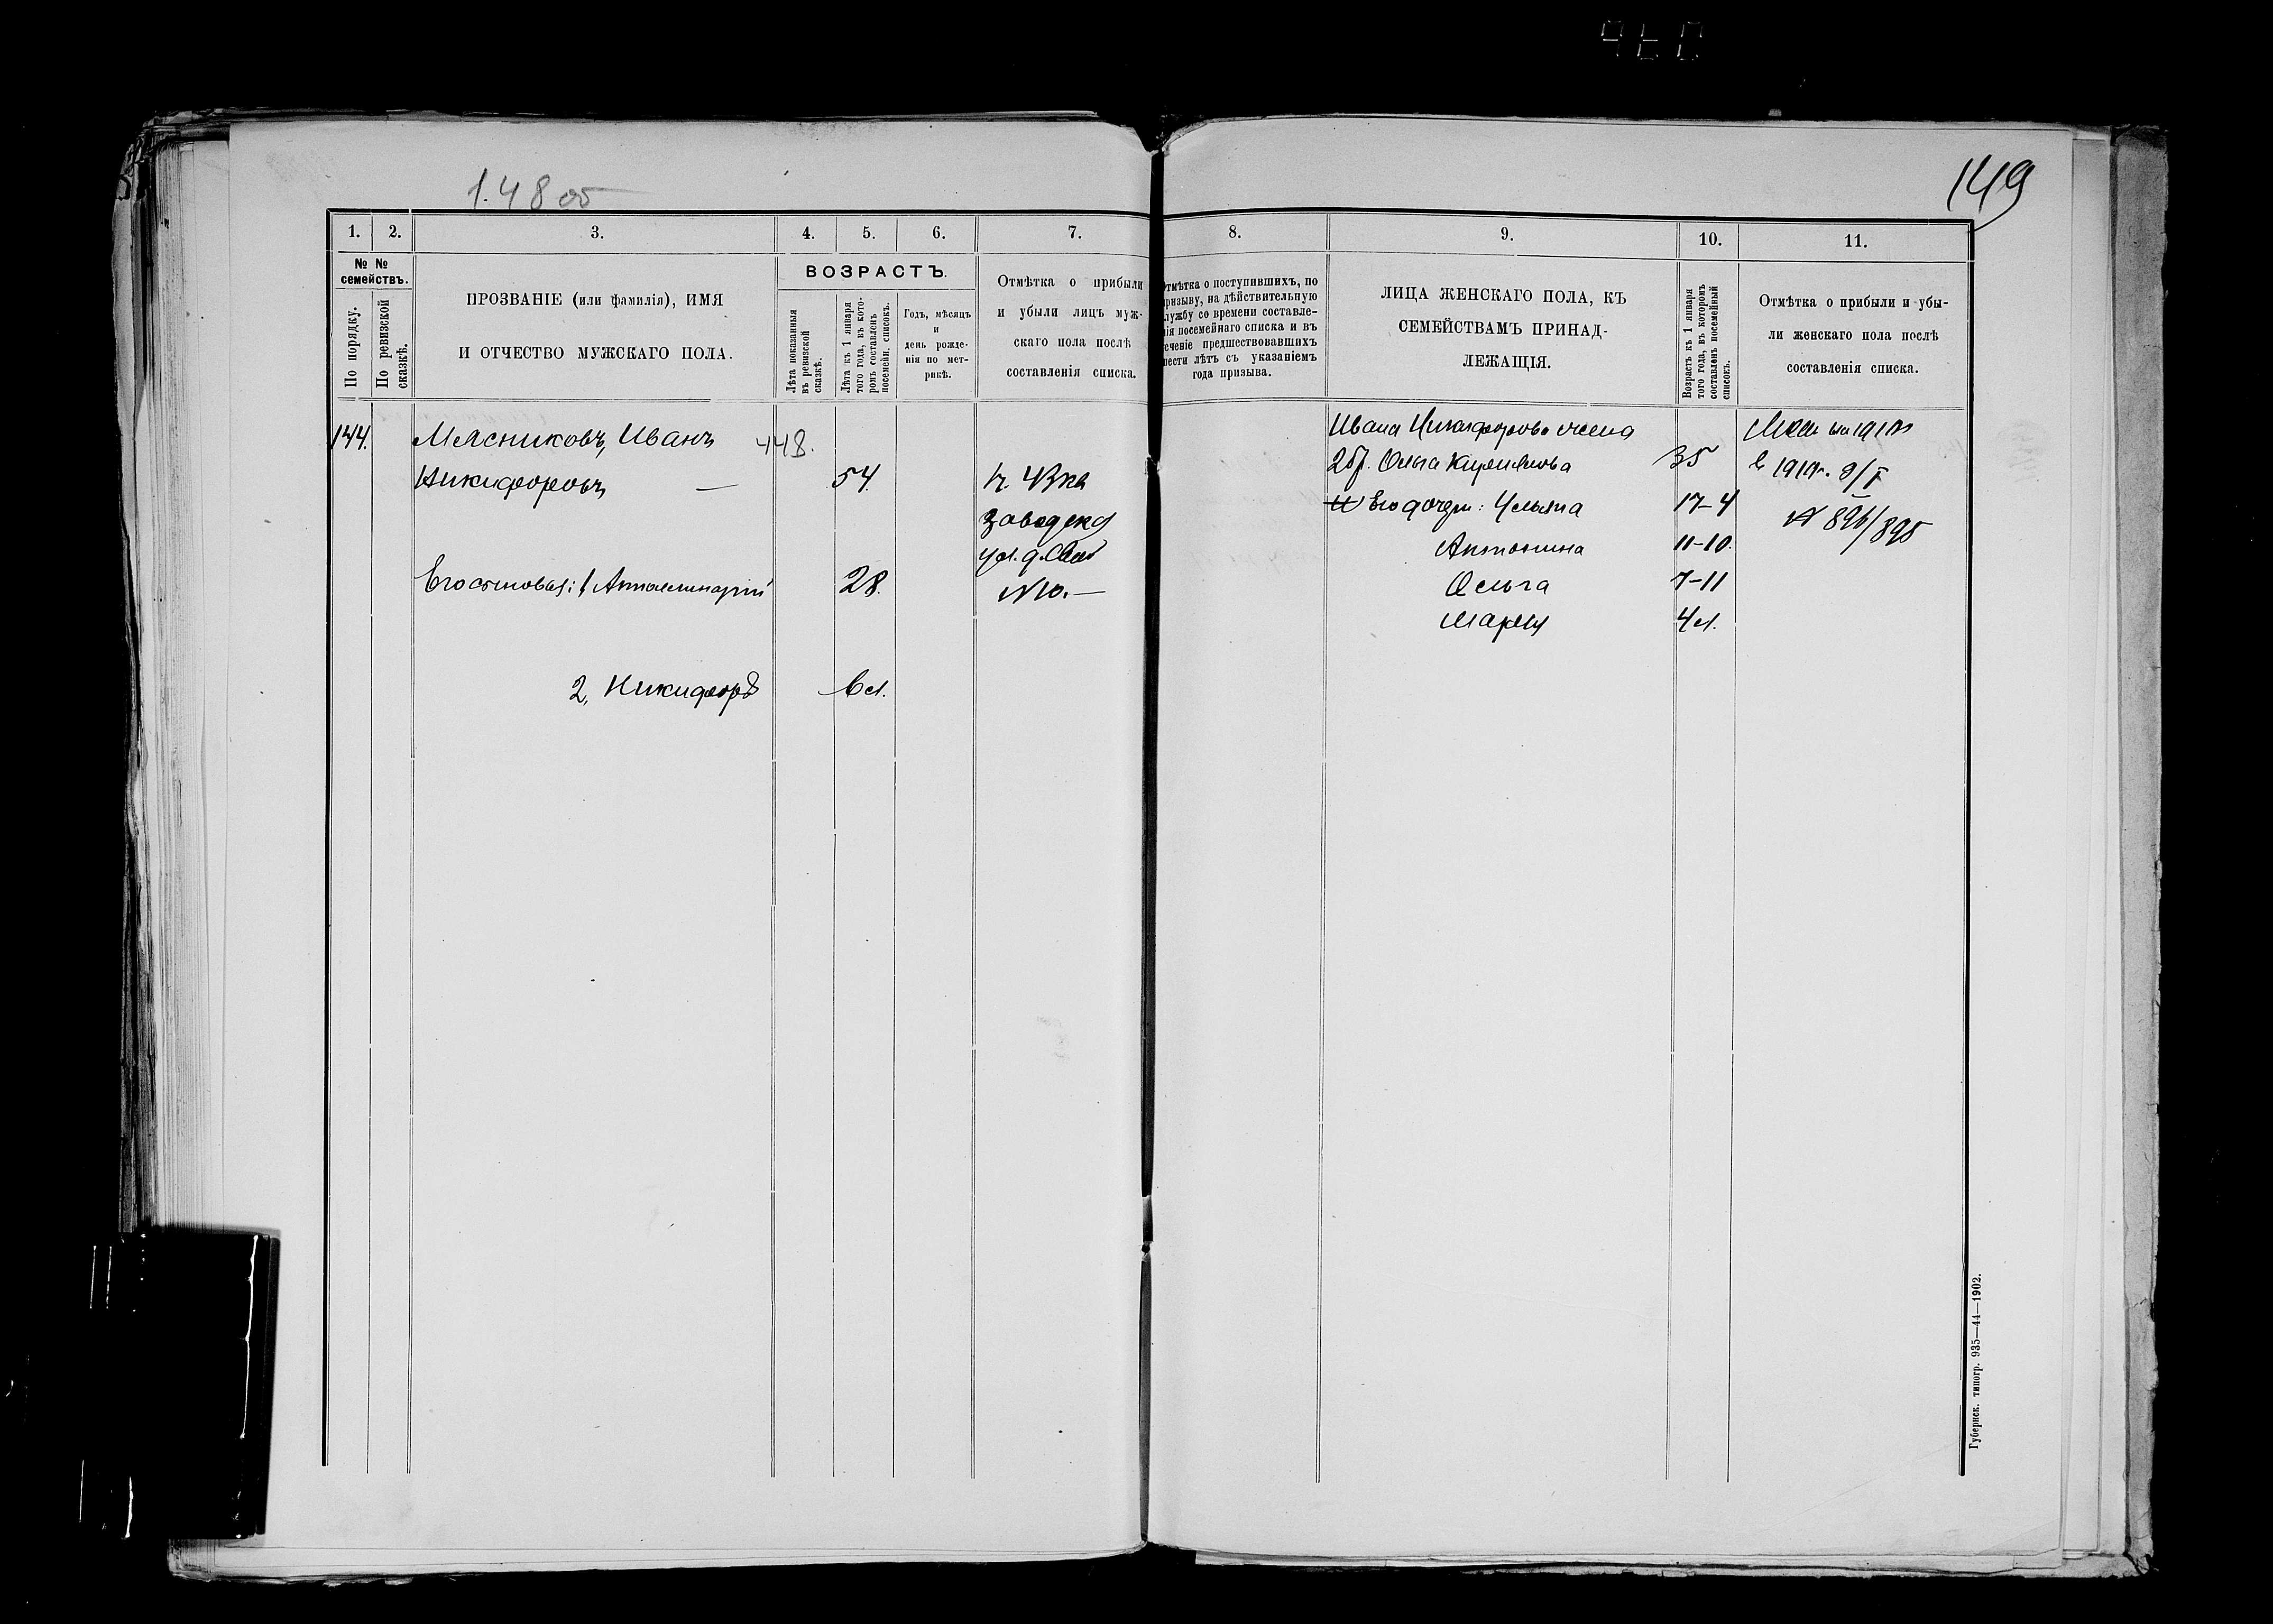 148 об
149
1. 2. 3. 4. 5. 6. 7.
№ № семействъ.
По порядку.
По ревизской сказкѣ.
ПРОЗВАНІЕ (или фамилія), ИМЯ
И ОТЧЕСТВО МУЖСКАГО ПОЛА.
ВОЗРАСТЪ.
Лѣта показанныя
въ ревизской
сказкѣ.
Лѣта къ 1 января
того года, въ кото-
ромъ составленъ
посемейн. списокъ.
Годъ, мѣсяцъ
и
день рожде-
нія по мет-
рикѣ.
Отмѣтка о прибыли
и убыли лицъ муж-
скаго пола послѣ
составленія списка.
144. Мясниковъ, Иванъ 448.
Никифоровъ — 54.
Заводск
№ 10. —
Его сыновья: 1 Апполинарій 28.
2, Никифоръ 6 л.
8. 9. 10. 11.
Отмѣтка о поступившихъ, по
призыву, на дѣйствительную
службу со времени составле-
нія посемейнаго списка и въ
теченіе предшествовавшихъ
шести лѣтъ съ указаніемъ
года призыва.
ЛИЦА ЖЕНСКАГО ПОЛА, КЪ
СЕМЕЙСТВАМЪ ПРИНАД-
ЛЕЖАЩІЯ.
Возрастъ къ 1 января
того года, въ которомъ
составленъ посемейный
списокъ.
Отмѣтка о прибыли и убы-
ли женскаго пола послѣ
составленія списка.
Ивана Никифорова жена
2 бр. Ольга 35
Его дочери: 17-4
Антонина 11-10.
Ольга 7-11
Марія 4 л.
№ 896/895
Губернск. типогр. 935—44—1902.